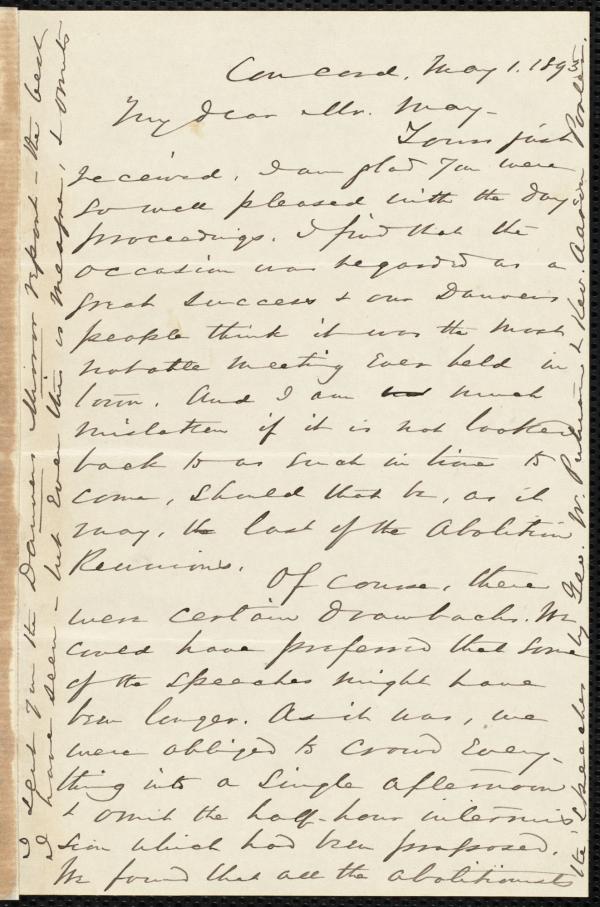 Concord, May 1. 1893.
My dear Mr. May-
Yours just
received. I am glad you were
so well pleased with the day's
proceedings. I find that the
occasion was regarded as a
great success & our Danvers
people think it was the most
notable meeting ever held in
town. And I am much
mistaken if it is not looked
back to as such in time to
come, should that be, as it
may, the last of the Abolition
Reunions.
Of course, there
were certain drawbacks. We
could have preferred that some
of the speeches might have
been longer. As it was, we
were obliged to crowd every-
thing into a single afternoon
& omit the half-hour intermis
sion which had been proposed.
We found that all the abolitionists
I sent you the Danvers Mirror report - the best
I have seen - but even this is meagre, & omits
the speeches by Geo. W. Putnam & Rev. Aaron Porter.